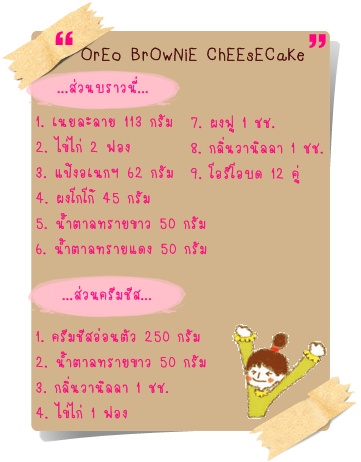 “ OrEo BrOwNiE ChEEsECaKe ”
...ส่วนบราวนี่...
1. เนยละลาย 113 กรัม
2. ไข่ไก่ 2 ฟอง
3. แป้งอเนกฯ 62 กรัม
4. ผงโกโก้ 45 กรัม
5. น้ำตาลทรายขาว 50 กรัม
6. น้ำตาลทรายแดง 50 กรัม
7. ผงฟู 1 ชช.
8. กลิ่นวานิลลา 1 ชช.
9. โอรีโอบด 12 คู่
...ส่วนครีมชีส...
1. ครีมชีสอ่อนตัว 250 กรัม
2. น้ำตาลทรายขาว 50 กรัม
3. กลิ่นวานิลลา 1 ชช.
4. ไข่ไก่ 1 ฟอง